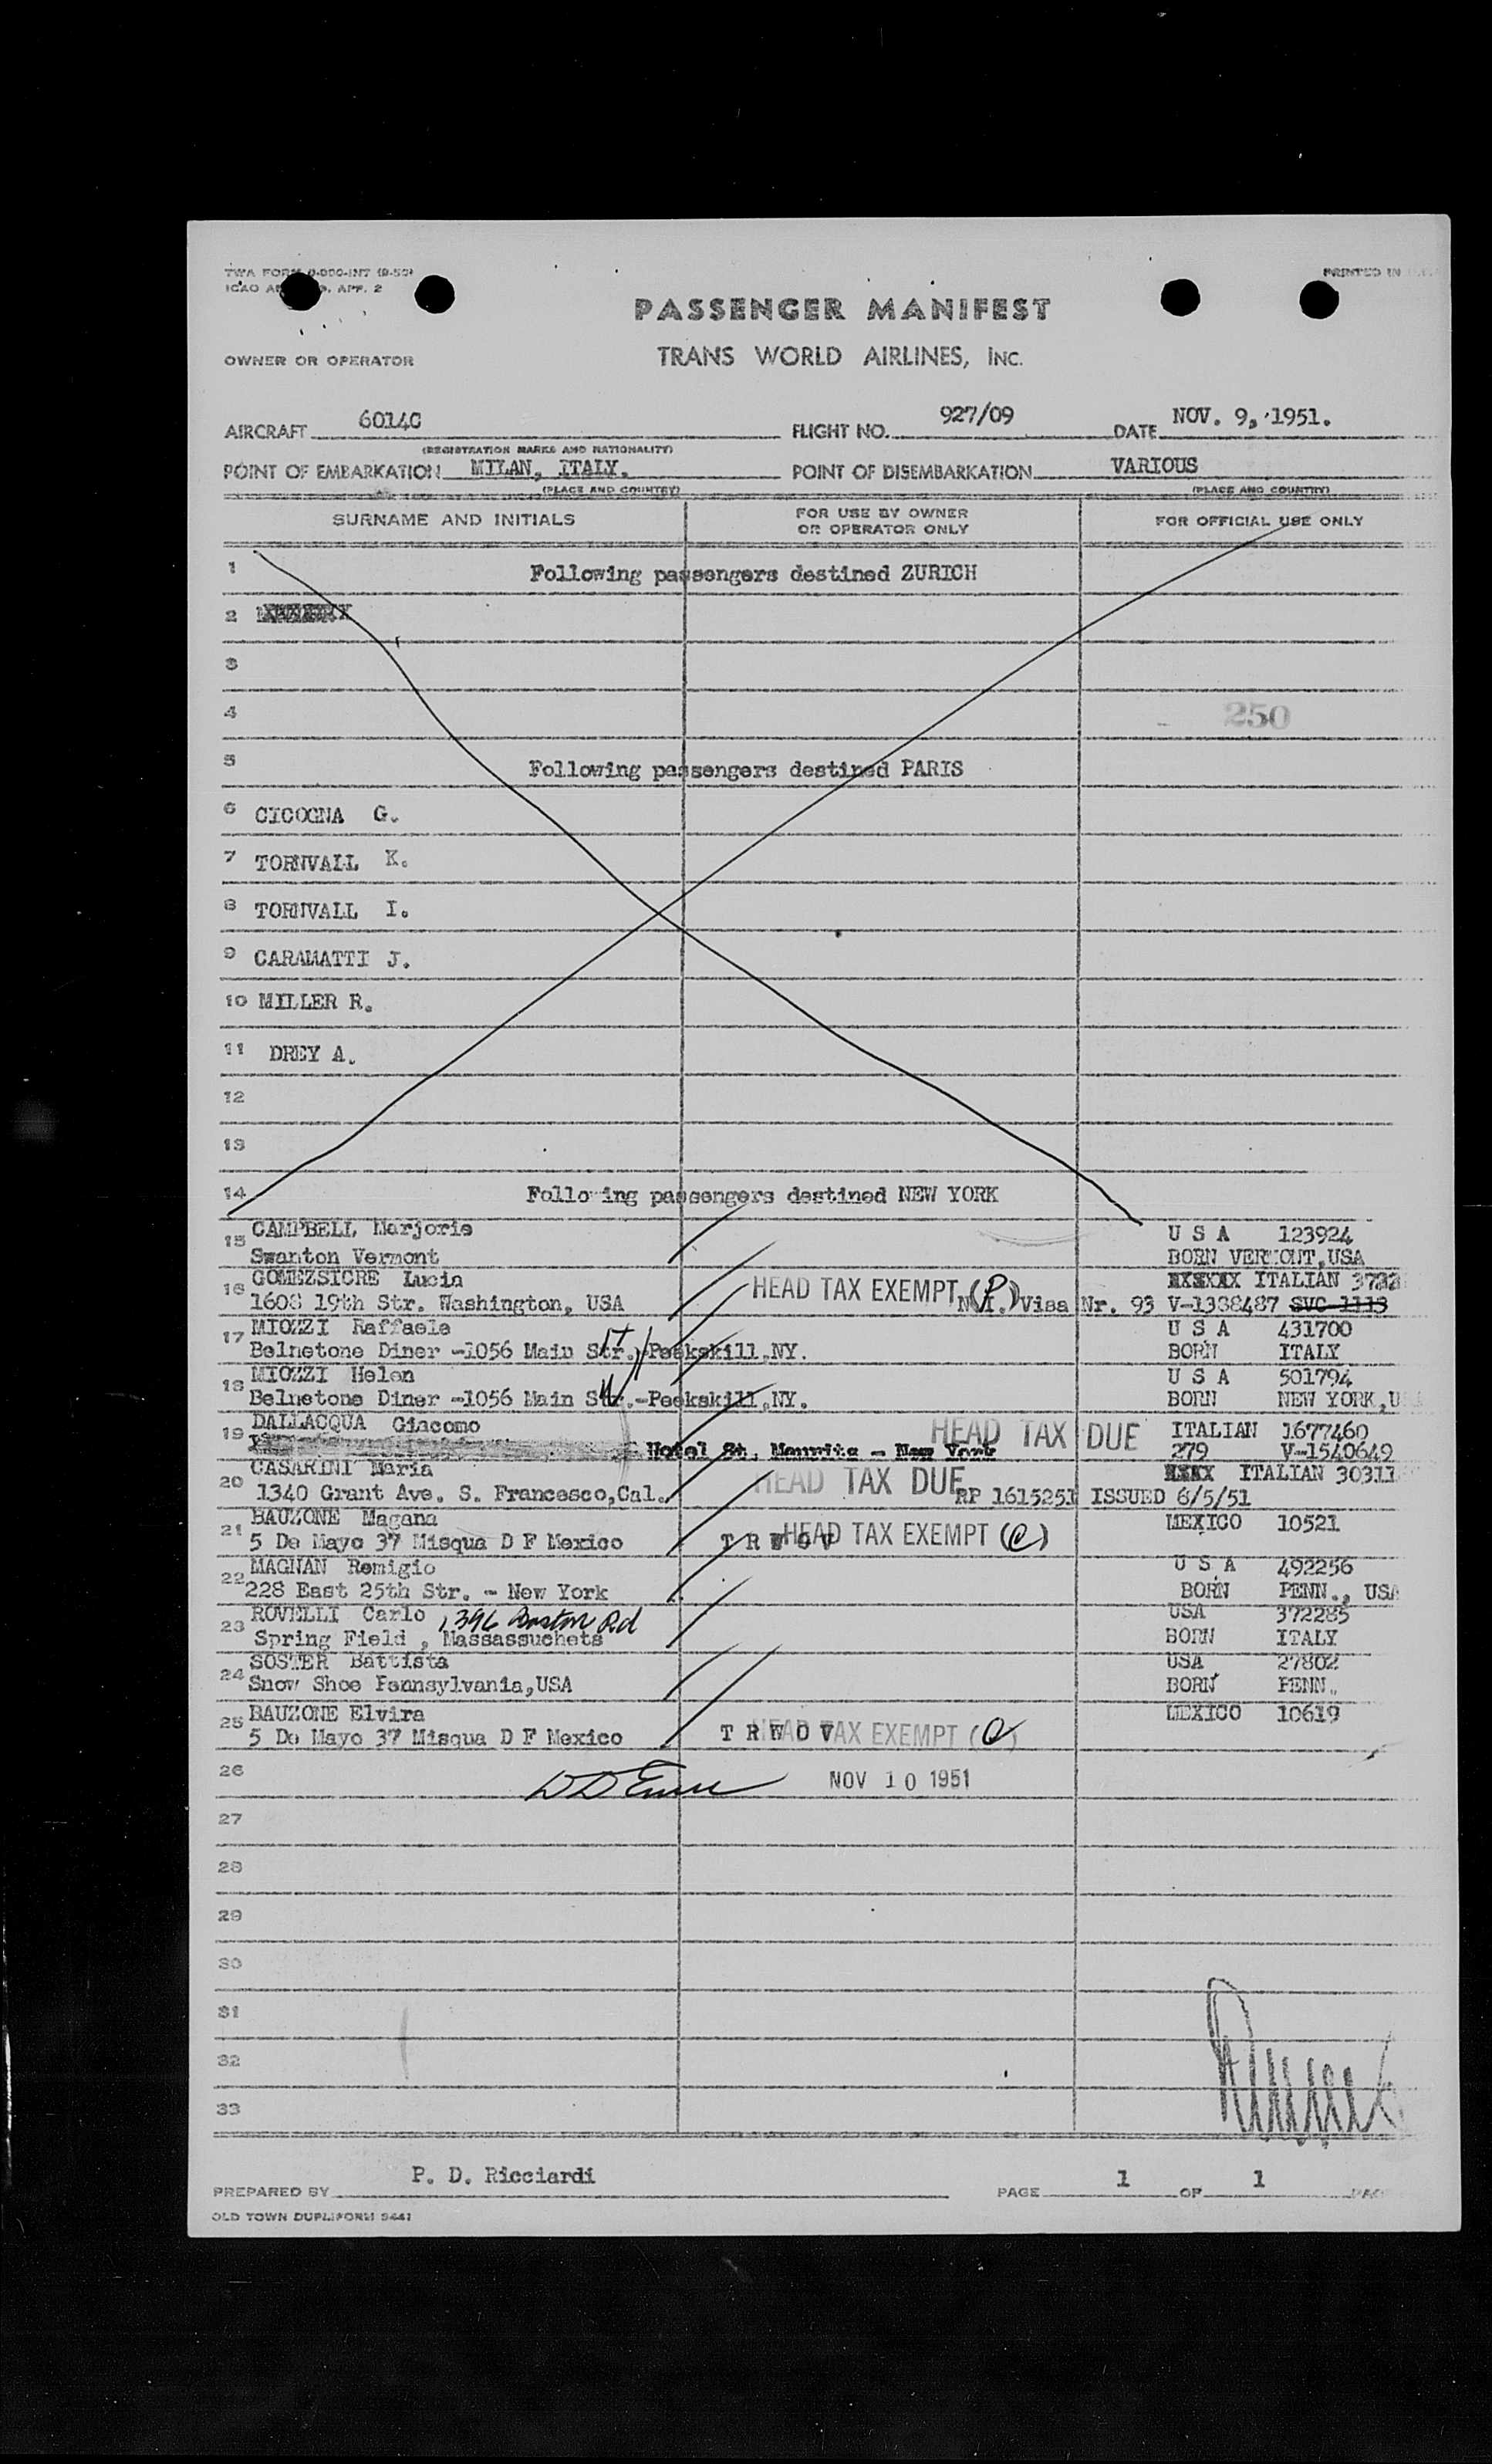 TWA FORM
ICAO
APP. 2
PRINTED IN
PASSENGER MANIFEST
OWNER OR OPERATOR
TRANS WORLD AIRLINES, INC.
AIRCRAFT 6014C FLIGHT NO. 927/09 DATE NOV. 9, 1951.
(REGISTRATION MARKS AND NATIONALITY)
POINT OF EMBARKATION MILAN, ITALY. POINT OF DISEMBARKATION VARIOUS
(PLACE AND COUNTRY) (PLACE AND COUNTRY)
SURNAME AND INITIALS FOR USE BY OWNER OR OPERATOR ONLY FOR OFFICIAL USE ONLY
1 Following passengers destined ZURICH
2
3
4 250
5 Following passengers destined PARIS
6 CICOGNA G.
7 TORNVALL K.
8 TORNVALL I.
9 CARAMATTI J.
10 MILLER R.
11 DREY A.
12
13
14 Following passengers destined NEW YORK
15 CAMPBELL Marjorie U S A 123924
Swanton Vermont BORN VERMONT, USA
16 GOMEZSICRE Lucia HEAD TAX EXEMPT (P) ITALIAN 3732
1608 19th Str. Washington, USA Visa Nr. 93 V-1338487 SVC 1113
17 MIOZZI Raffaele U S A 431700
Belnetone Diner -1056 Main Str.-Peekskill.NY. BORN ITALY
18 MIOZZI Helen U S A 501794
Belnetone Diner -1056 Main Str.-Peekskill.NY. BORN NEW YORK,U
19 DALLACQUA Giacomo HEAD TAX DUE ITALIAN 1677460
Hotel St. Mauritz - New York 279 V-1540649
20 CASARINI Maria HEAD TAX DUE ITALIAN 30311
1340 Grant Ave. S. Francesco,Cal. RP 1615251 ISSUED 6/5/51
21 BAUZONE Magana HEAD TAX EXEMPT (C) MEXICO 10521
5 De Mayo 37 Misqua D F Mexico T R W O V
22 MAGNAN Remigio U S A 492256
228 East 25th Str. - New York BORN PENN., USA
23 ROVELLI Carlo 1396 Boston Rd USA 372285
Spring Field , Massassuchets BORN ITALY
24 SOSTER Battista USA 27802
Snow Shoe Pennsylvania,USA BORN PENN.
25 BAUZONE Elvira MEXICO 10619
5 De Mayo 37 Misqua D F Mexico T R W O V HEAD TAX EXEMPT (C)
26 NOV 10 1951
27
28
29
30
31
32
33
PREPARED BY P. D. Ricciardi PAGE 1 OF 1
OLD TOWN DUPLIFORM 5441